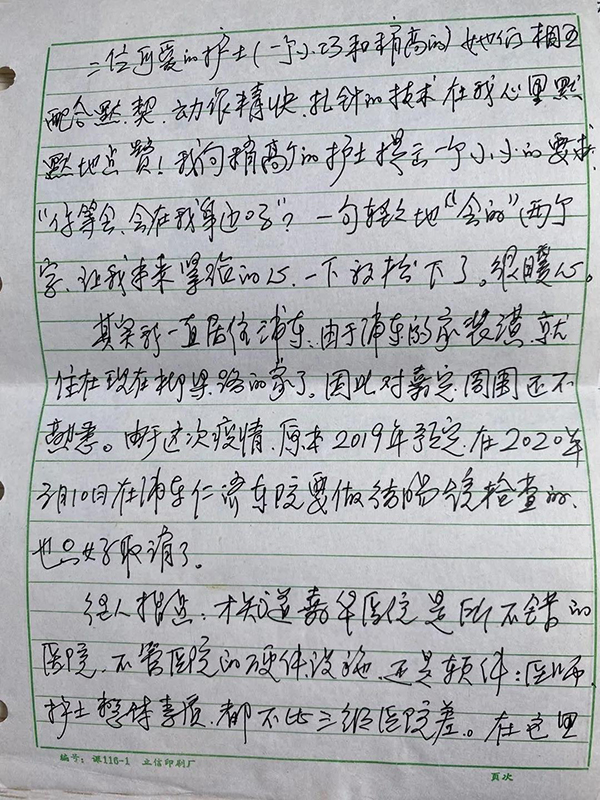 二位可爱的护士(一个小巧和稍高的)她们相互
配合默契、动作轻快、扎针的技术在我心里默
默地点赞!我向稍高个的护士提出一个小小的要求
“你等会、会在我身边吗”?一句轻轻地“会的”(两个
字、让我本来紧张的心、一下放松下了。很暖心。
其实我一直居住浦东、由于浦东的家装潢、就
住在现在柳梁路的家了。因此对嘉定周围还不
熟悉。由于这次疫情、原本2019年预定在2020年
3月10日在浦东仁济东院要做结肠镜检查的、
也只好取消了。
经人指点、才知道嘉华医院是所不错的
医院、不管医院的硬件设施、还是软件:医师、
护士整体素质、都不比三级医院差。在这里
编号:课116-1 立信印刷厂
页次